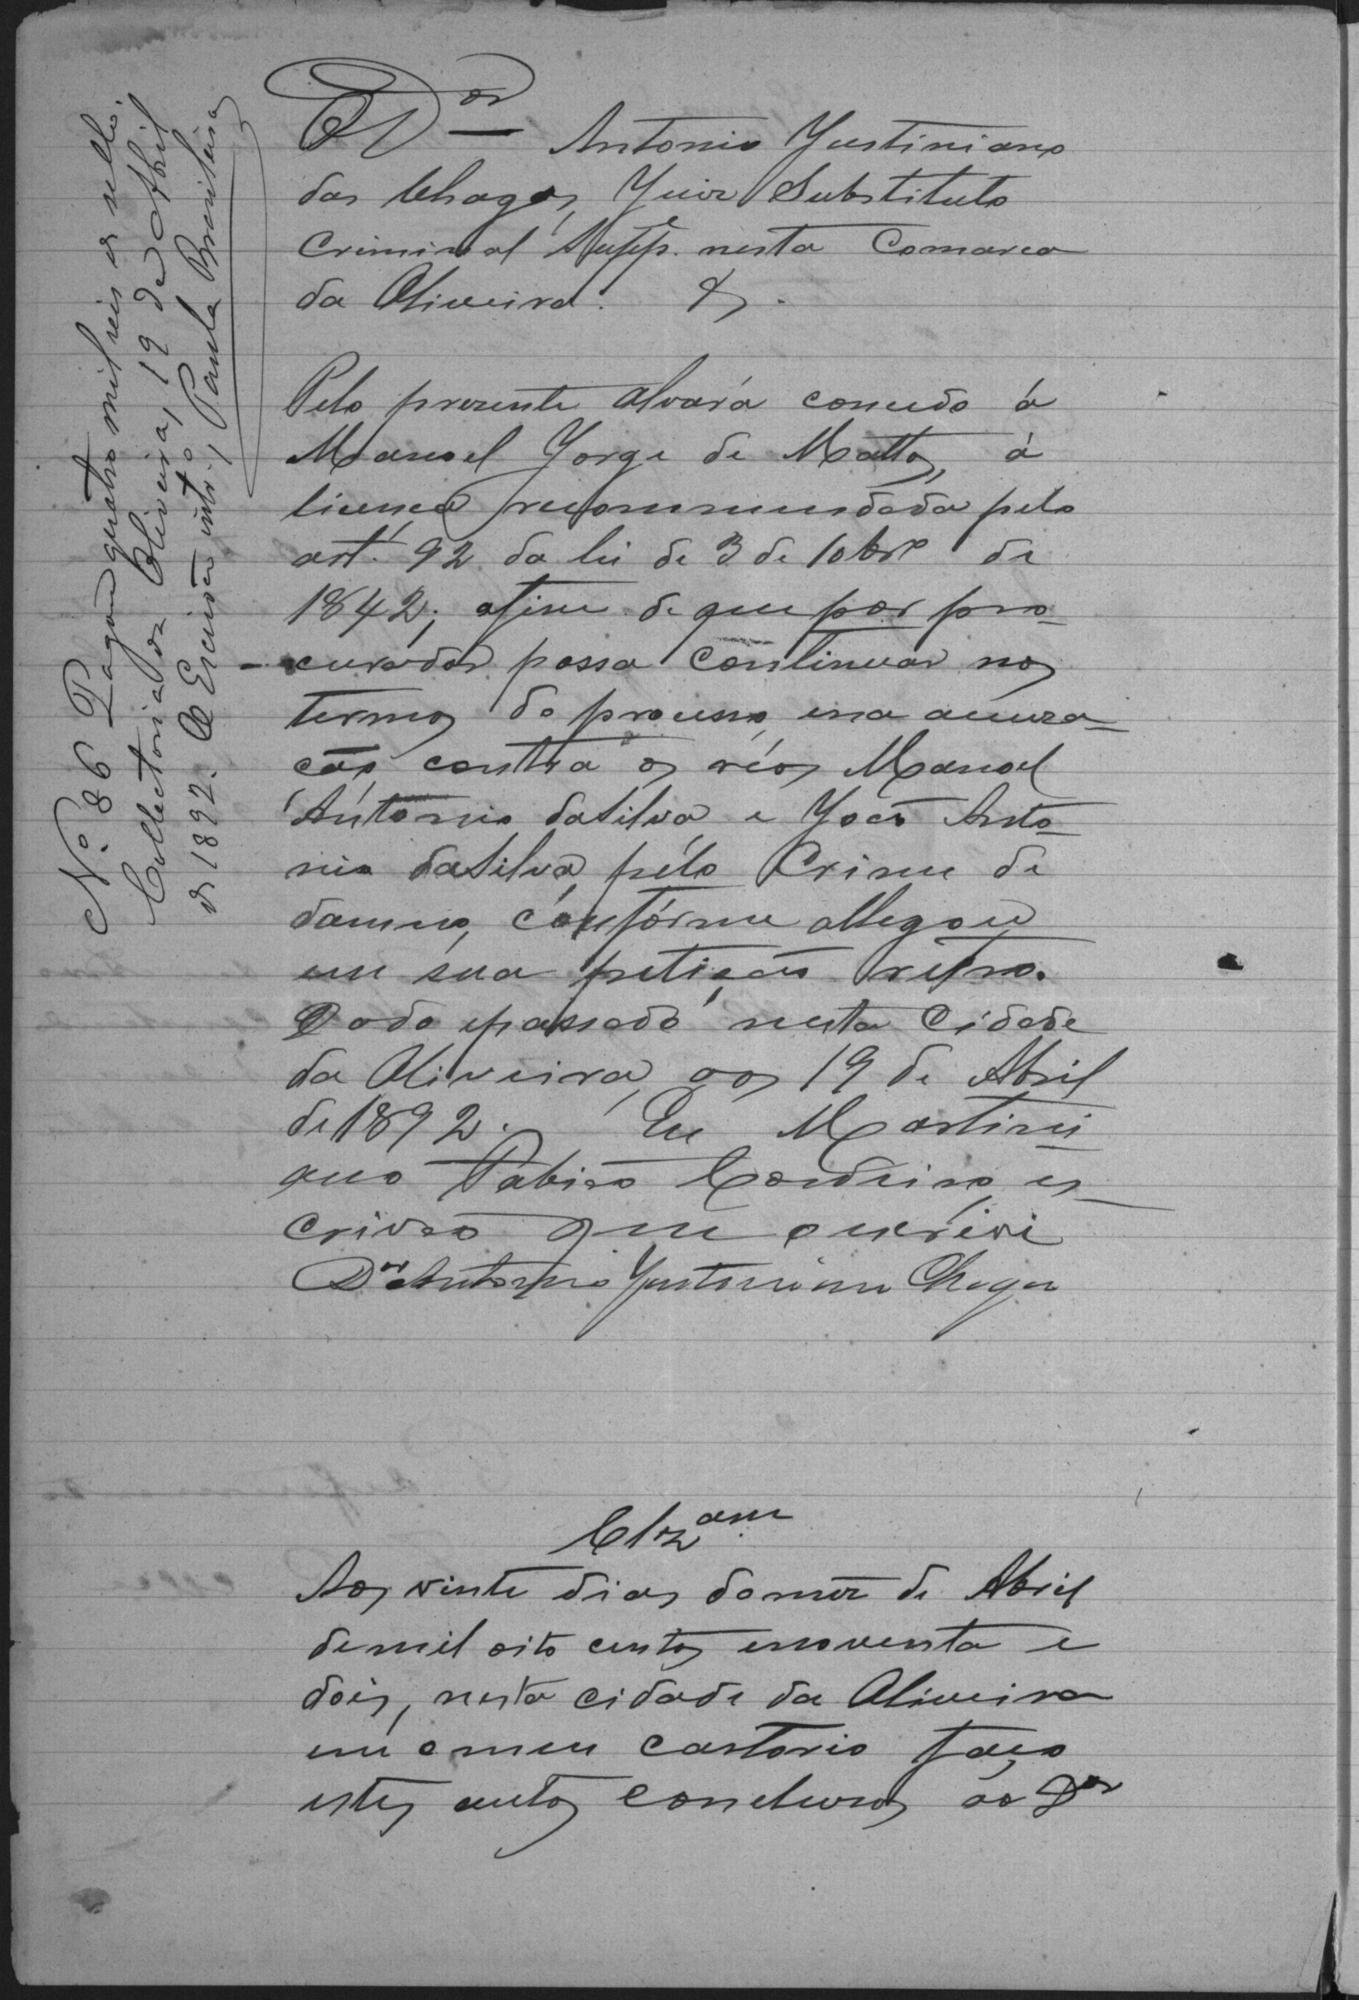 O Dor Antonio Justiniano
das Chagas, Juiz Substituto
Criminal Suppe. nesta Comarca
da Oliveira. &.
Pelo prezente alvará concedo á
Manoel Jorge de Mattos, á
licença recommendada pelo
art. 92 da lei de 3 de 10brº de
1842; afim de que por pro-
curador possa continuar nos
termos do processo, e na accuza-
ção contra os réos Manoel
Antonio da Silva e João Anto-
nio da Silva, pelo Crime de
damno, conforme allegou
em sua petição retro.
Dado e passado nesta Cidade
da Oliveira, aos 19 de Abril
de 1892. Eu Martini
ano Cordeiro, es-
crivão que o escrevi
Dor Antonio Justiniano Chagas
Clzam
Aos vinte dias do mez de Abril
de mil oito centos e noventa e
dois, nesta cidade da Oliveira
em o meu cartorio faço
estes autos conclusos ao Dor
Nº 86 Pagou quatro mil reis de sello.
Collectoria da Oliveira, 19 de Abril
de 1892. O Escrivão intº, Paula